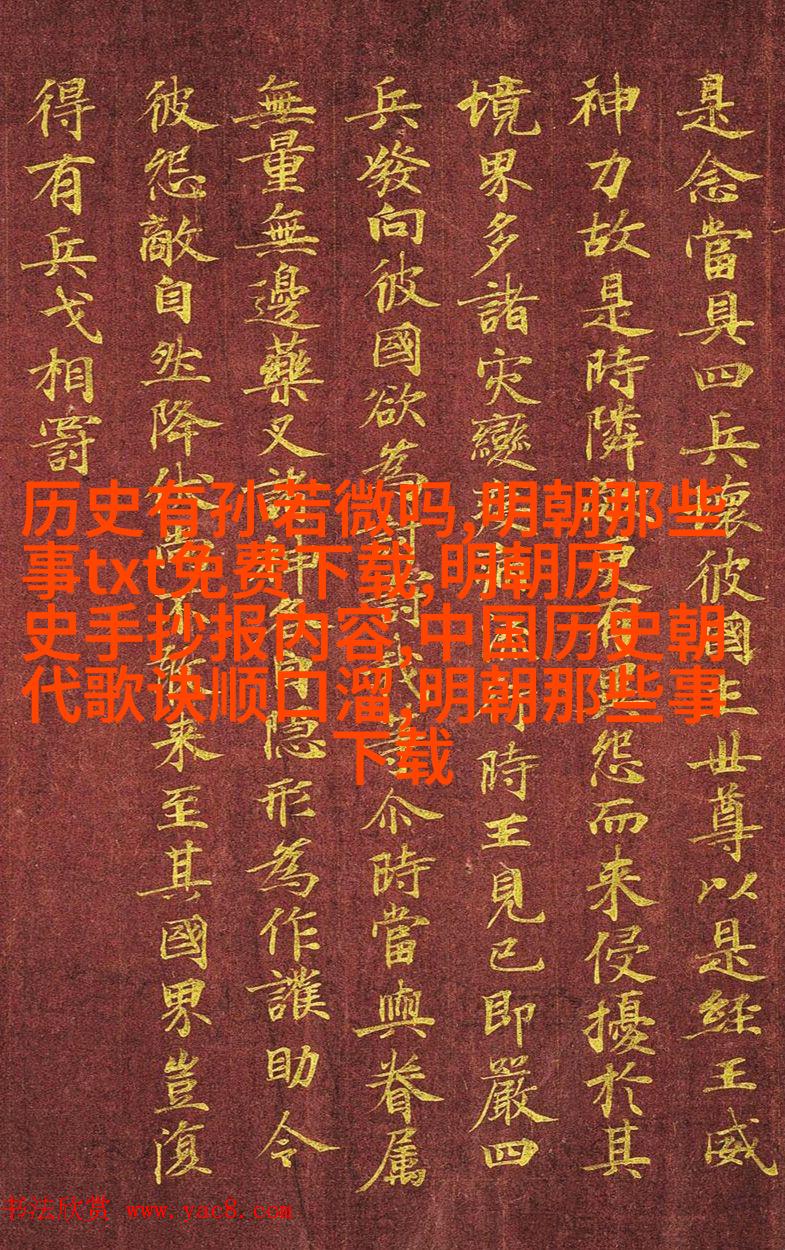 是念當具四兵壞彼國土世尊以是經王威
神力故是時隣更有怨而来侵擾於其
境界多諸灾變時王見已即嚴四
兵發向彼國欲為討罸我等尒時當與眷属
無量無邊藥叉諸神各自隐形為作護助令
彼怨敵自然降伏尚不敢来至其國界豈復
得有兵戈相罸
历史有孙若微吗,明朝那些
事txt免费下载,明朝历
史手抄报内容,中国历史朝
代歌诀顺口溜,明朝那些事
下载
书法欣赏 www.yac8.com